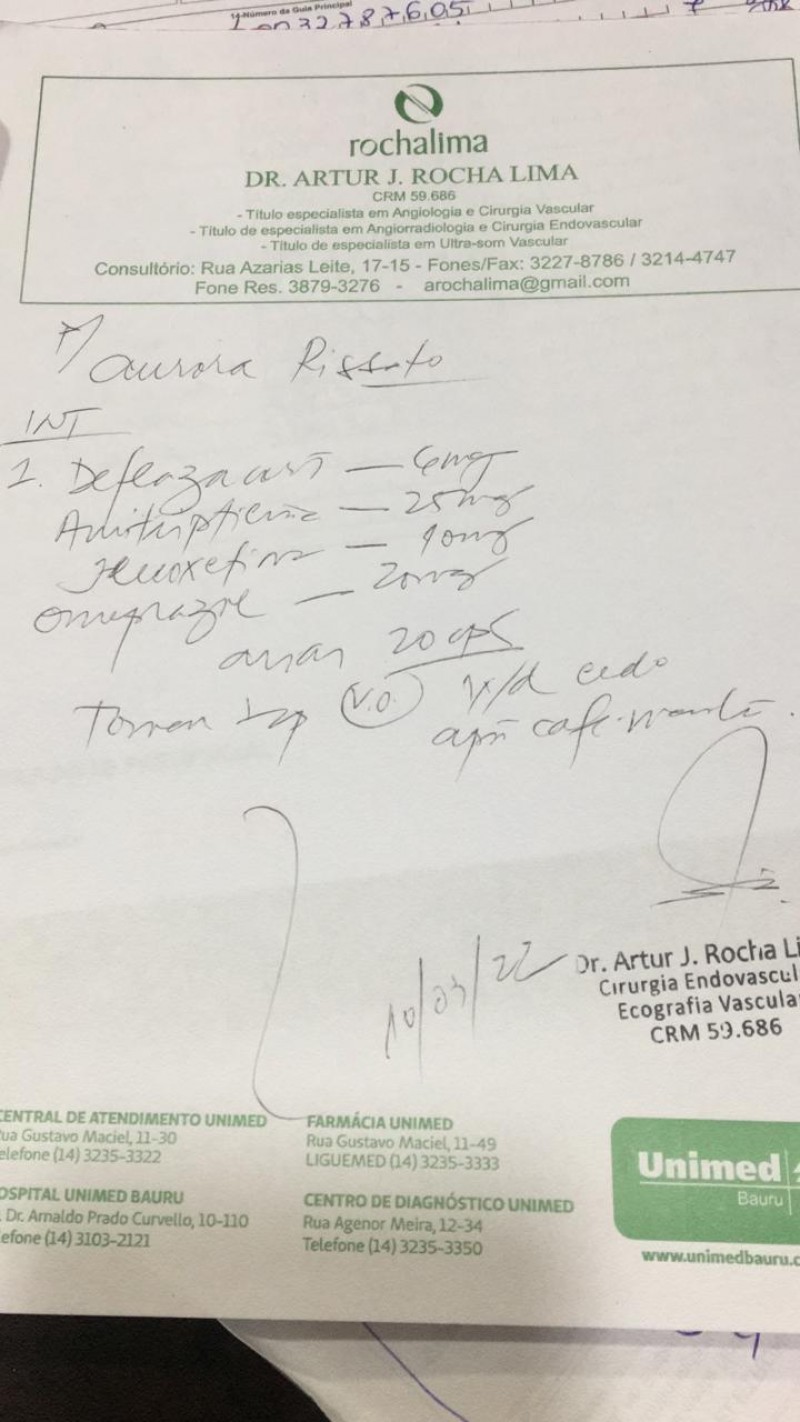 14-Número da Guia Principal
rochalima
DR. ARTUR J. ROCHA LIMA
CRM 59.686
- Título especialista em Angiologia e Cirurgia Vascular
- Título de especialista em Angiorradiologia e Cirurgia Endovascular
- Título de especialista em Ultra-som Vascular
Consultório: Rua Azarias Leite, 17-15 - Fones/Fax: 3227-8786 / 3214-4747
Fone Res. 3879-3276 - arochalima@gmail.com
P/ aurora Rissato
INT
1. Deflazacort — 6mg
Amitriptilina — 25mg
Fluoxetina — 10mg
Omeprazol — 20mg
20 cps
Tomar 1 cp V.O. 1x/d cedo
após café-manhã.
10/03/22
Dr. Artur J. Rocha Li
Cirurgia Endovascul
Ecografia Vascula
CRM 59.686
CENTRAL DE ATENDIMENTO UNIMED
ua Gustavo Maciel, 11-30
elefone (14) 3235-3322
OSPITAL UNIMED BAURU
. Dr. Arnaldo Prado Curvello, 10-110
efone (14) 3103-2121
FARMÁCIA UNIMED
Rua Gustavo Maciel, 11-49
LIGUEMED (14) 3235-3333
CENTRO DE DIAGNÓSTICO UNIMED
Rua Agenor Meira, 12-34
Telefone (14) 3235-3350
Unimed
Bauru
www.unimedbauru.c